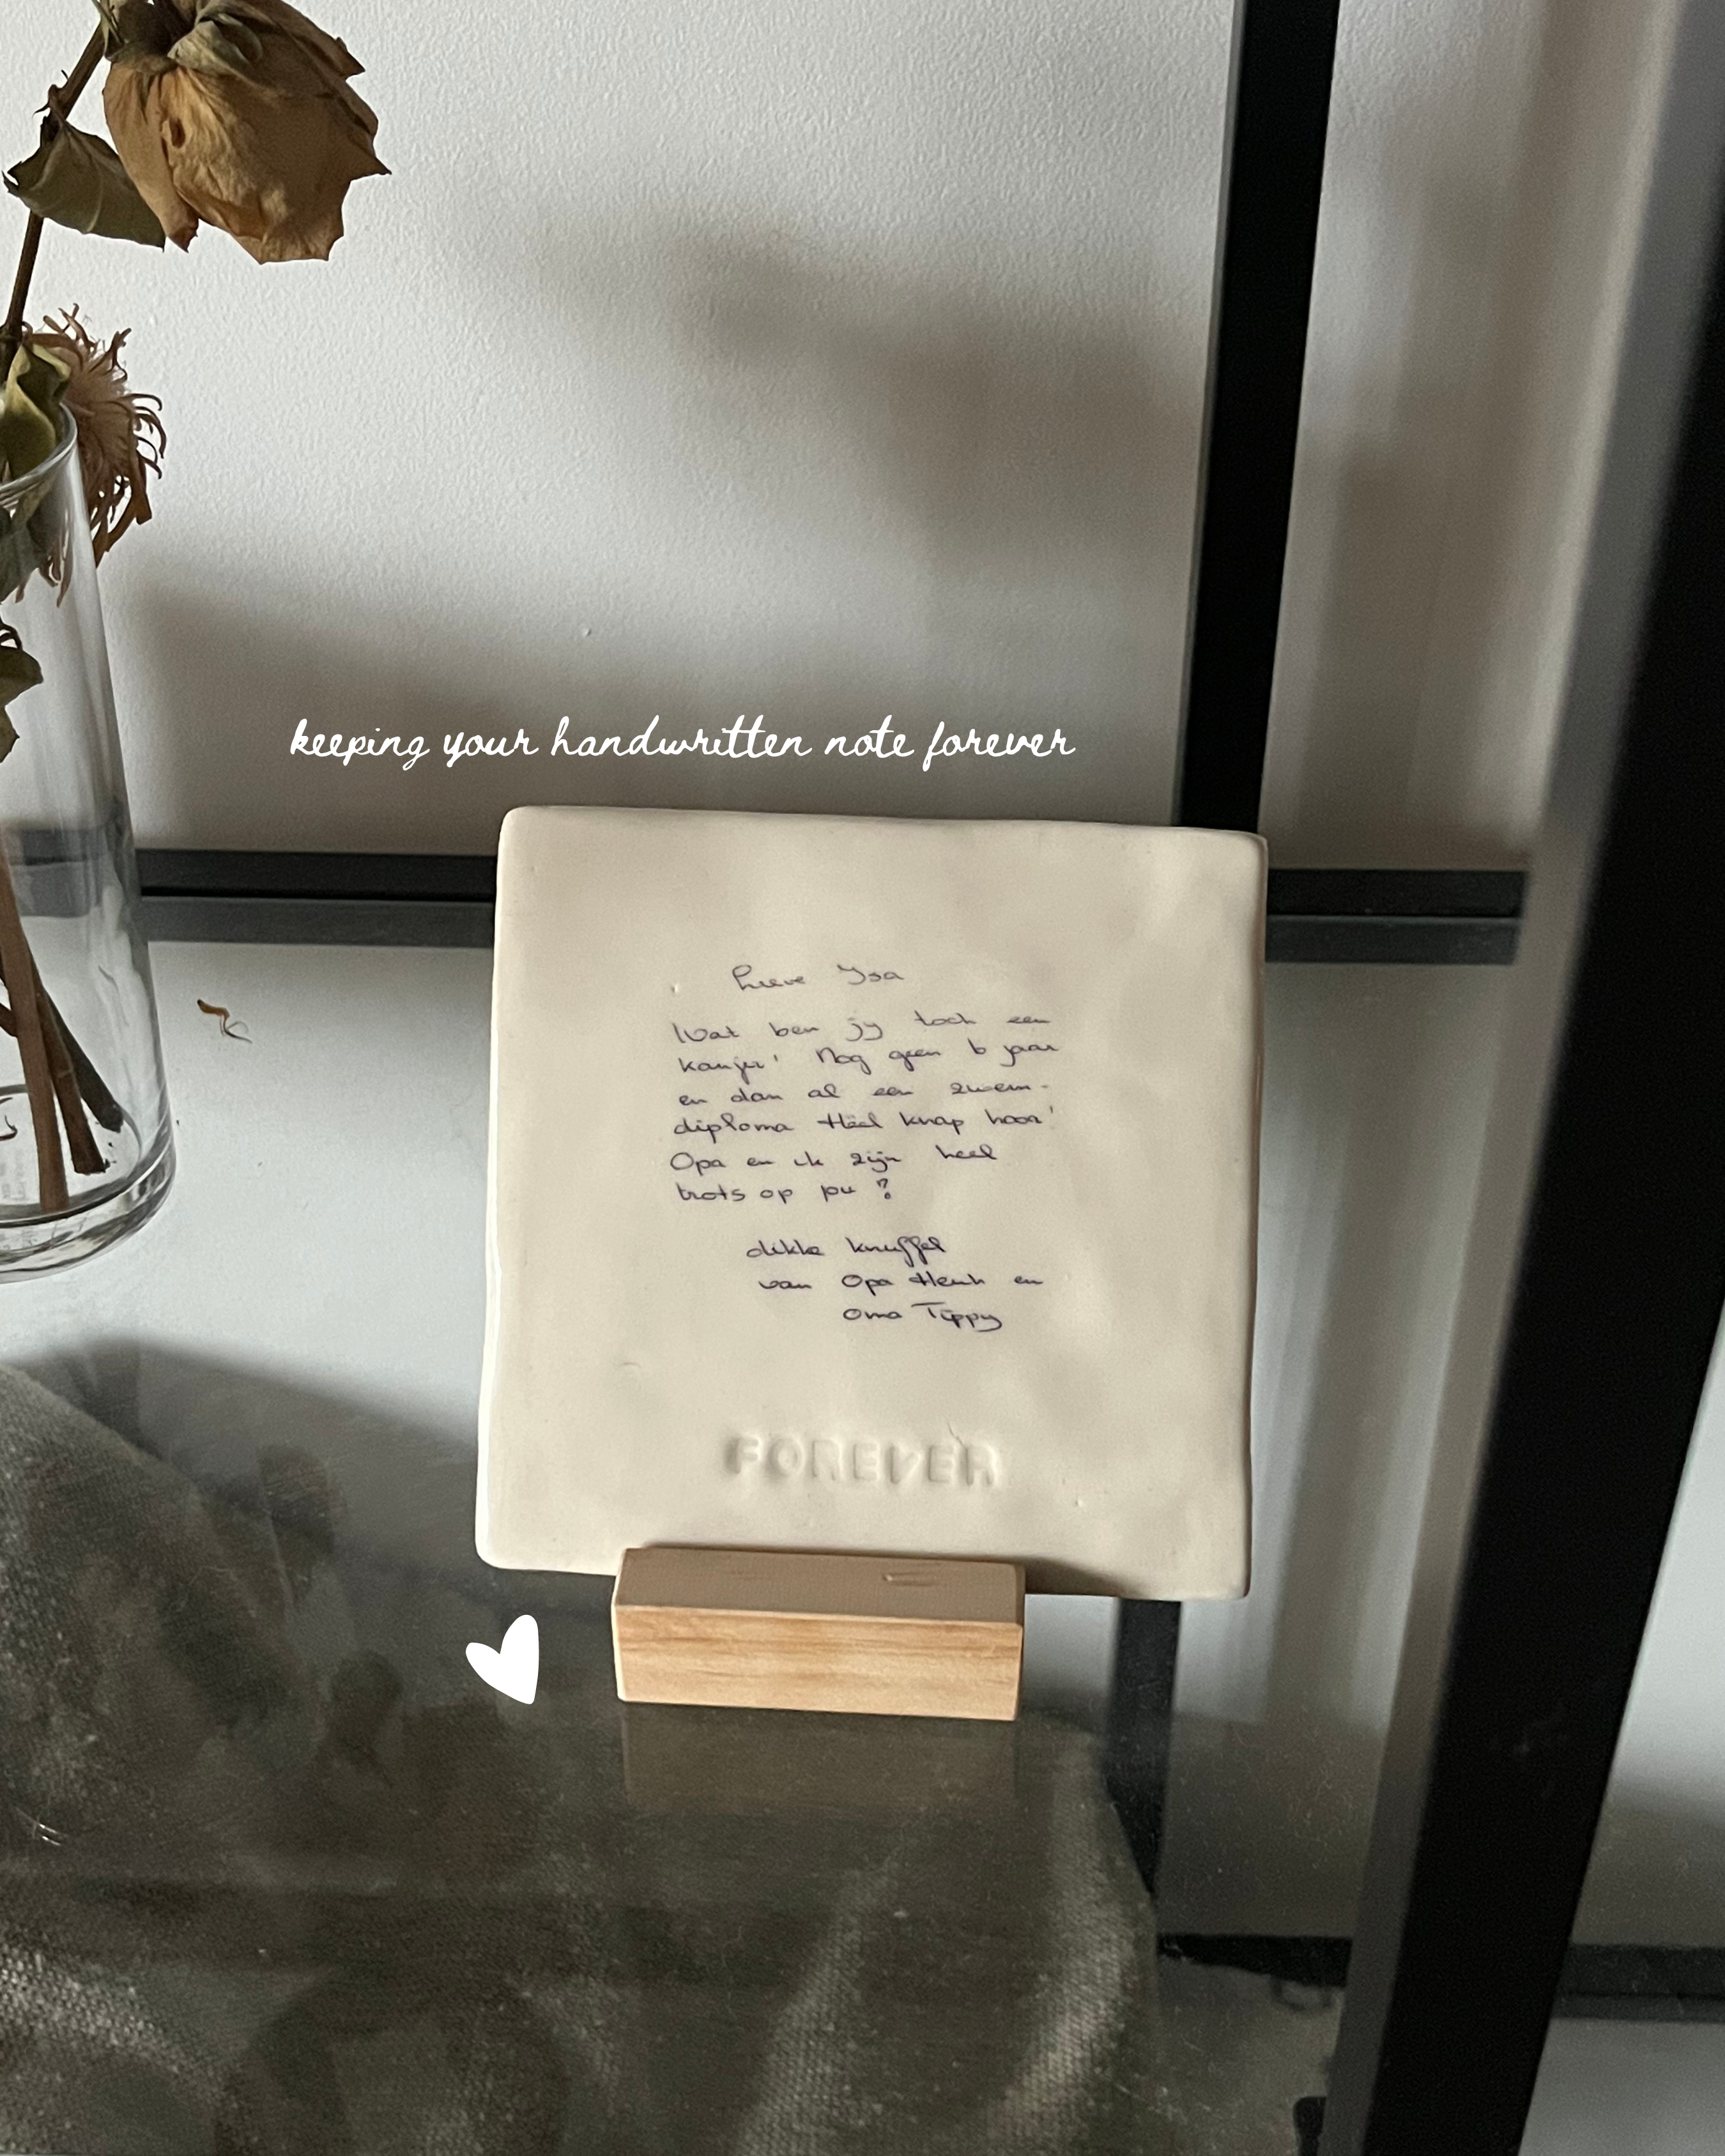 keeping your handwritten note forever
Lieve Ysa
Wat ben jy toch een
kanjer! Nog geen 6 jaar
en dan al een zwem-
diploma Héél knap hoor!
Opa en ik zijn heel
trots op jou ?
dikke knuffel
van Opa Henk en
Oma Tippy
FOREVER